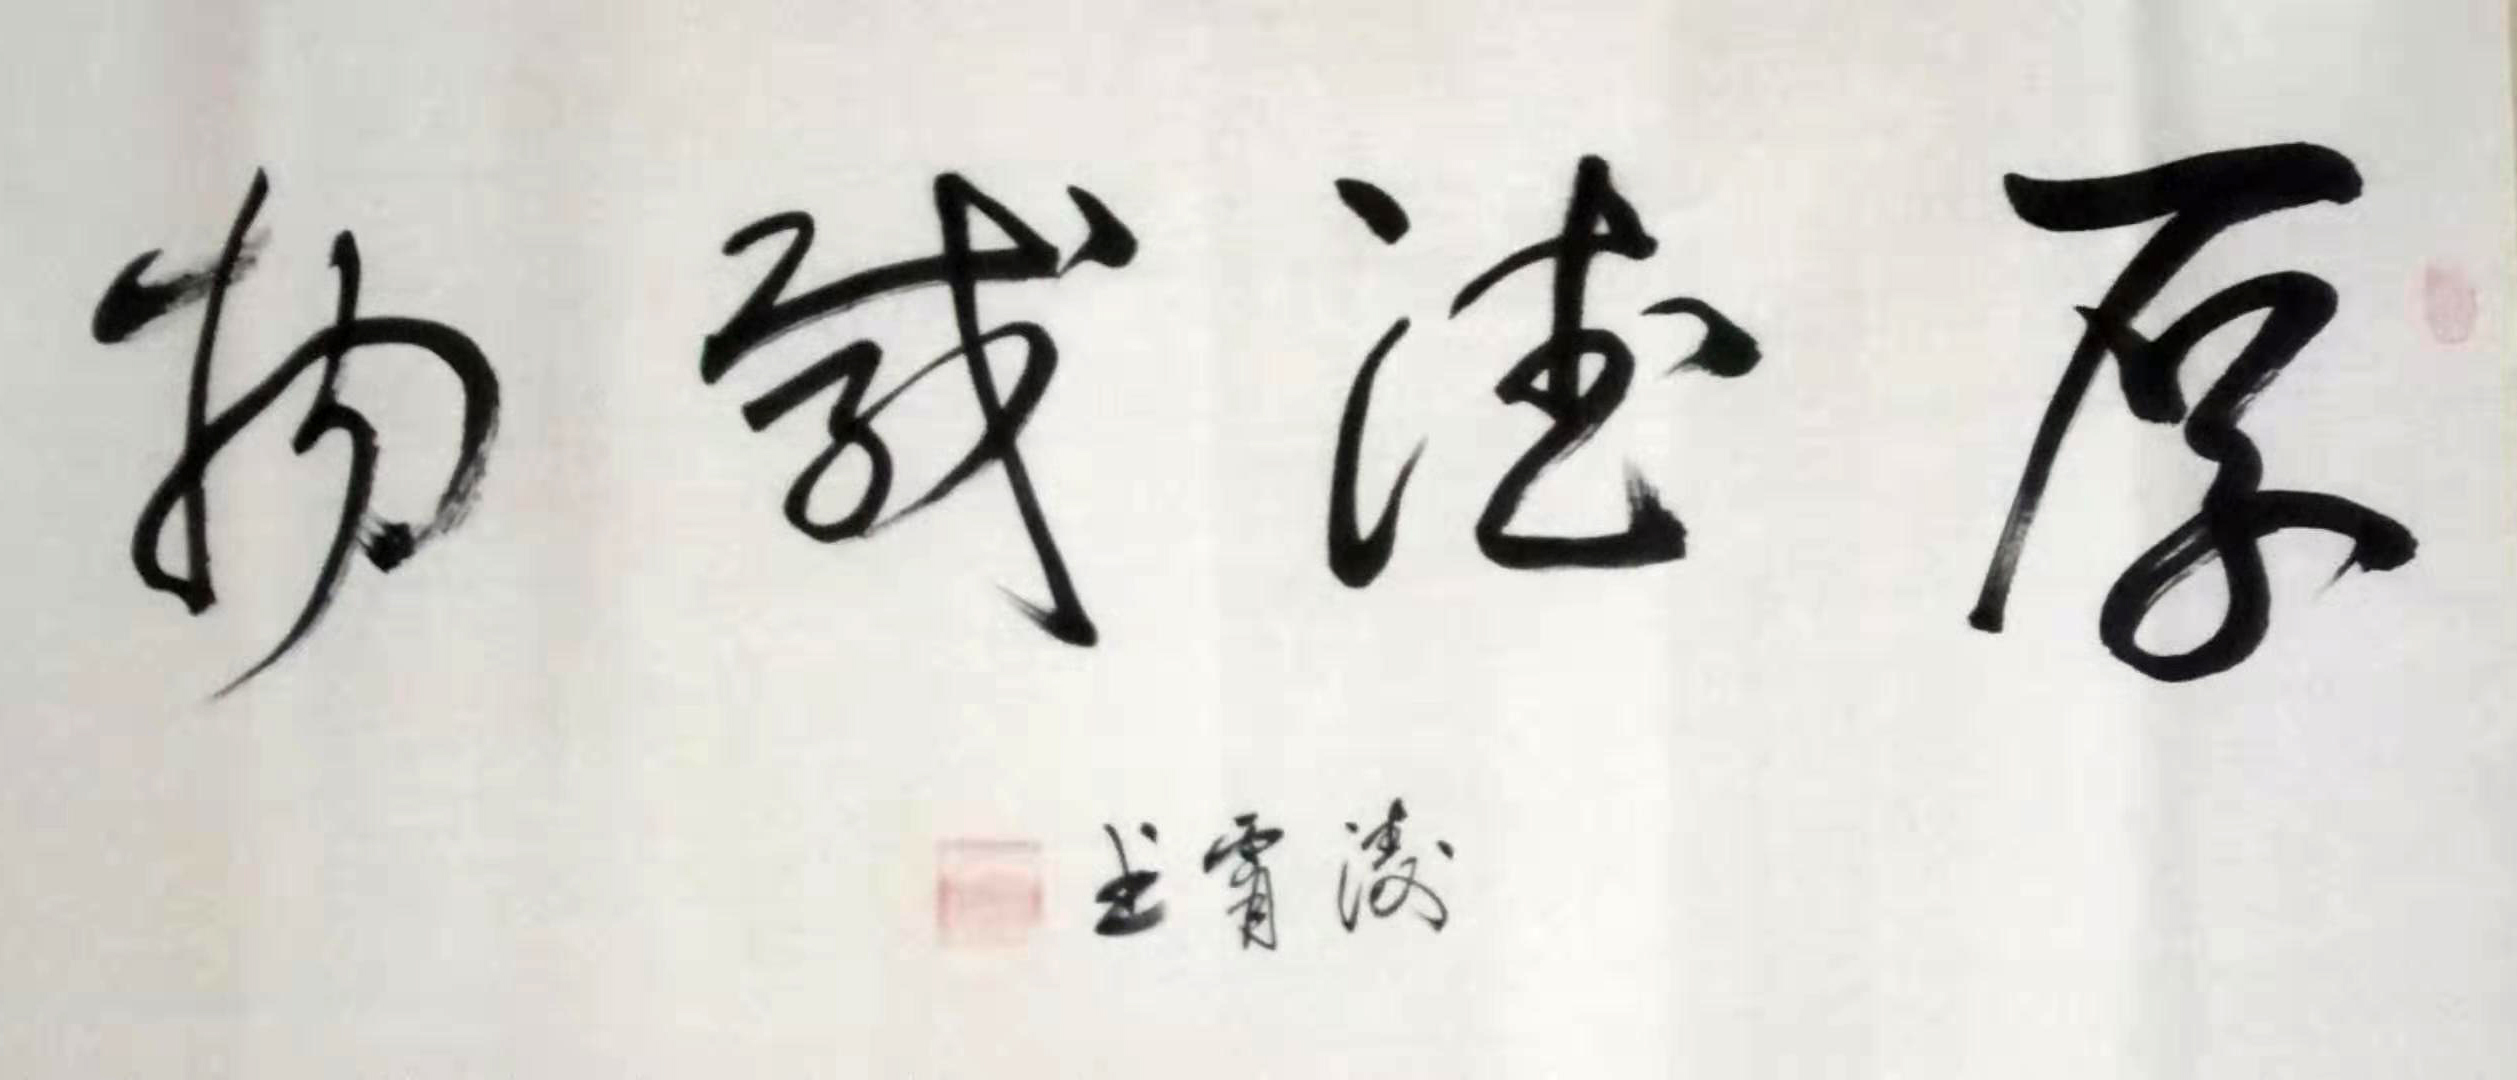 厚德载物
凌霄书